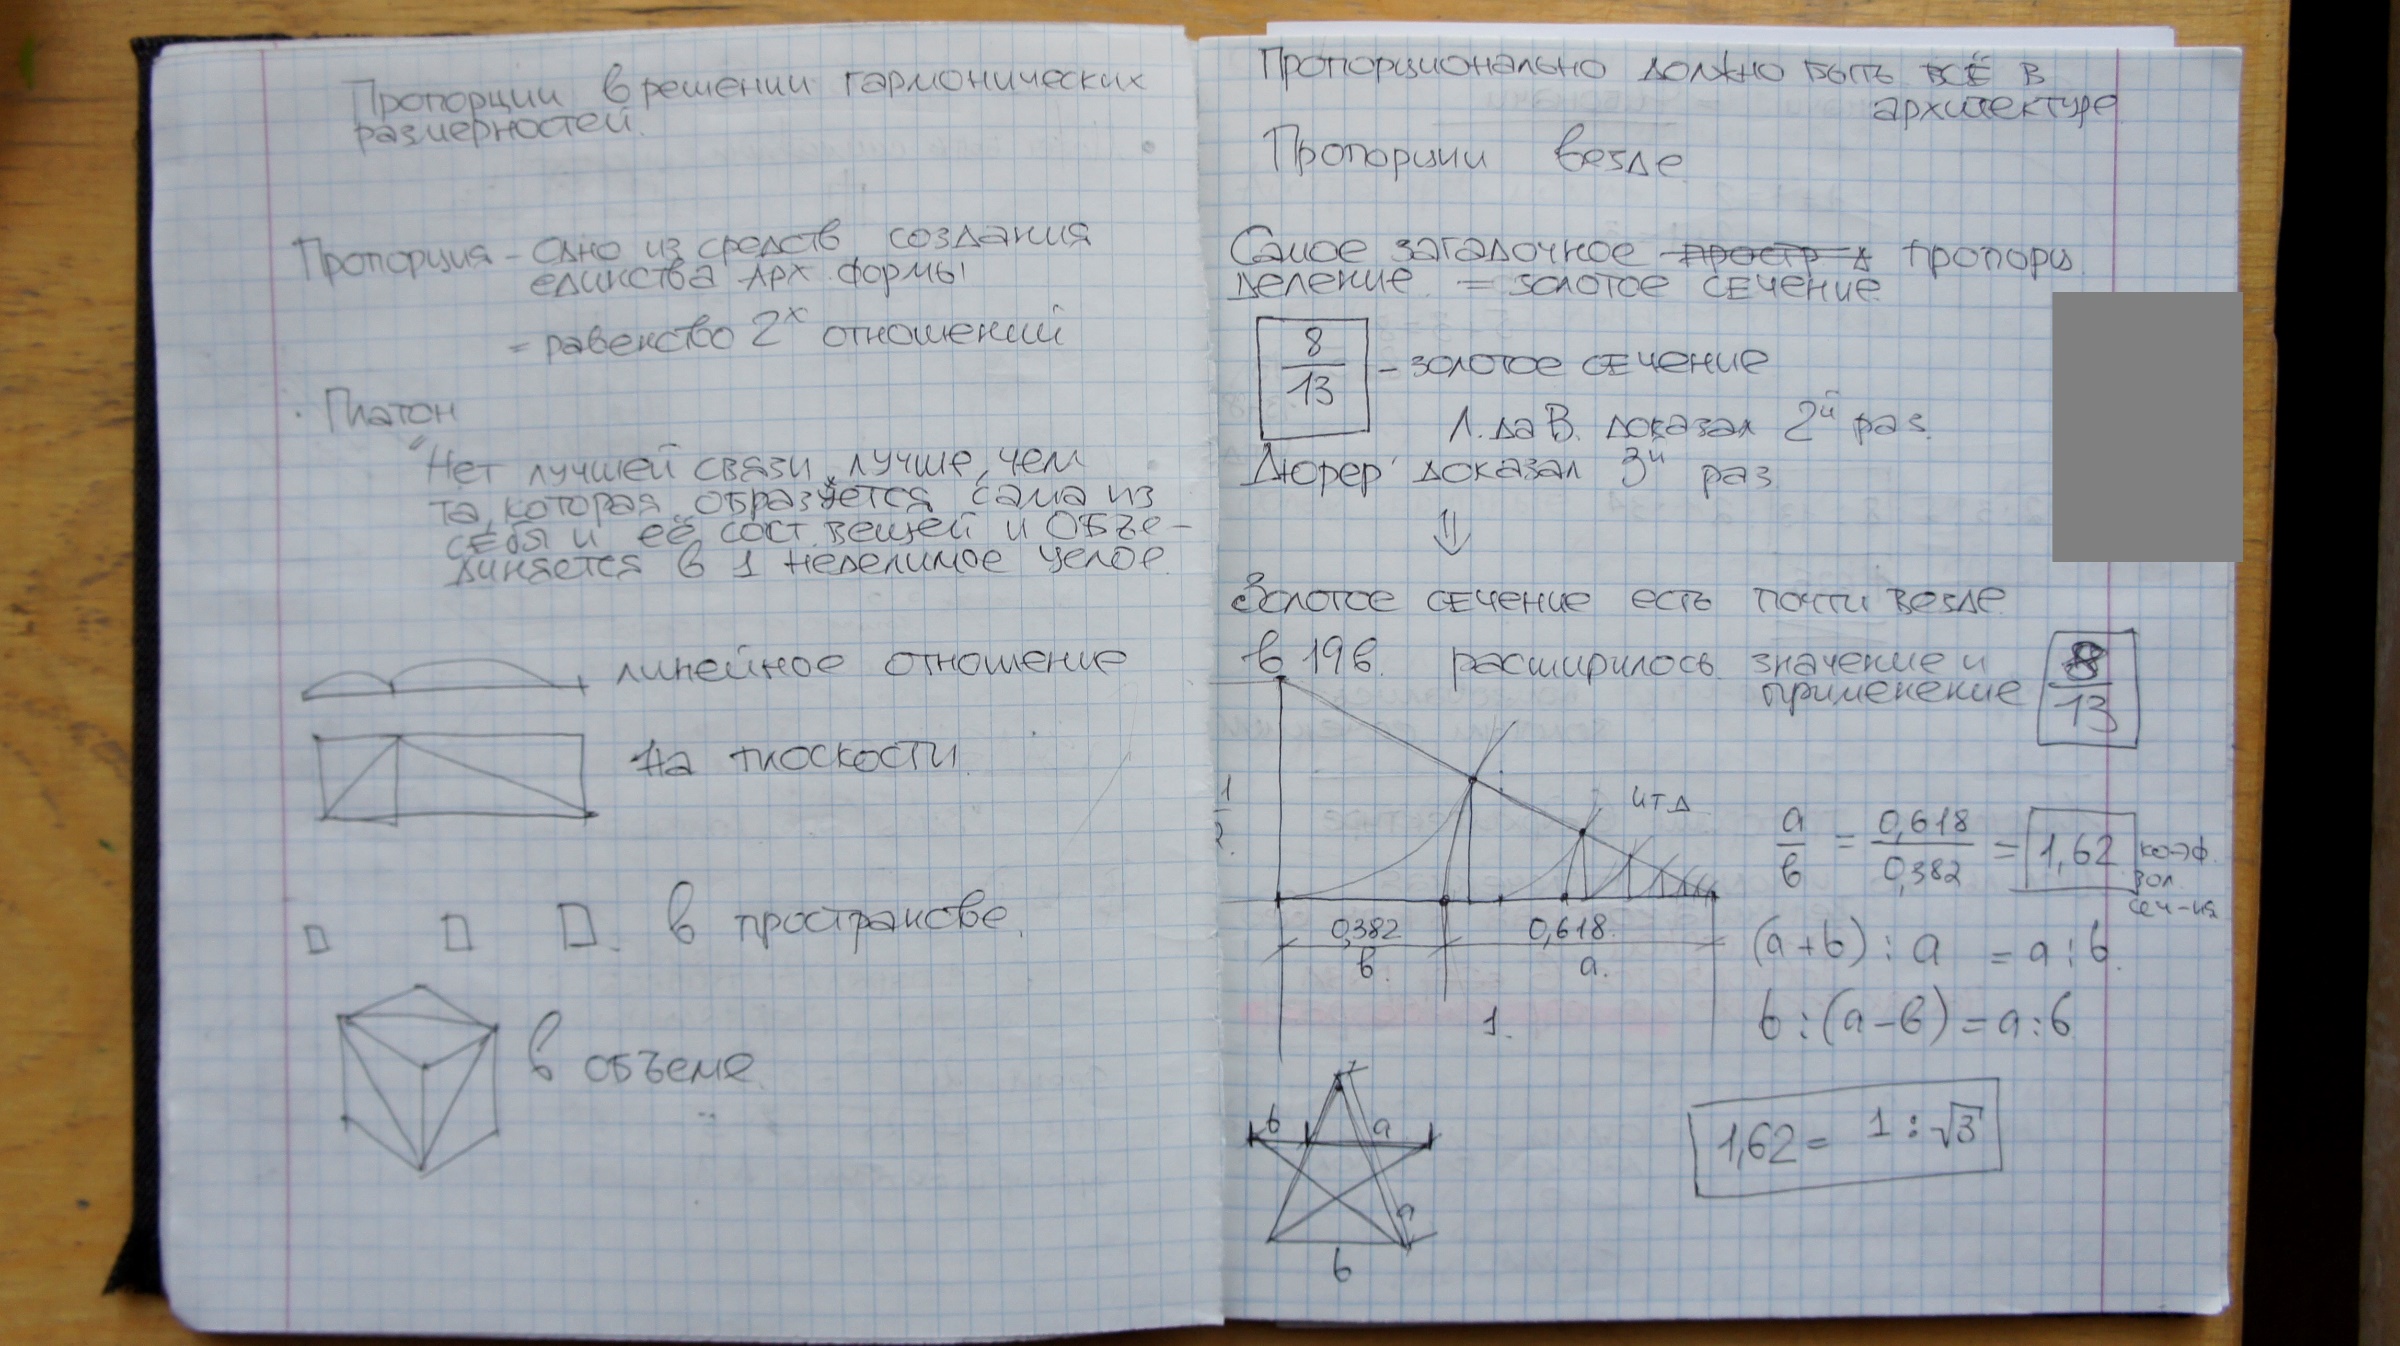 Пропорции в решении гармонических
размерностей.
Пропорция - одно из средств создания
единства арх. формы
= равенство 2х отношений
· Платон
"Нет лучшей связи, лучше, чем
та, которая образуется сама из
себя и её сост. вещей и объе-
диняется в 1 неделимое целое.
линейное отношение
на плоскости.
в пространстве.
в объеме.
Пропорционально должно быть всё в
архитектуре
Пропорции везде
Самое загадочное простр пропорц
деление = золотое сечение
8
13
- золотое сечение
Л. да В. доказал 2й раз.
Дюрер доказал 3й раз
⇓
Золотое сечение есть почти везде
в 19 в. расширилось значение и
применение
8
13
1
2
и т д
0,382
в.
0,618
а.
1.
a/в = 0,618/0,382 = 1,62 коэф.
зол.
сеч-ия
(a+b) : a = a : b.
b : (a-b) = a : b
b a
a
b
1,62 = 1 : √3